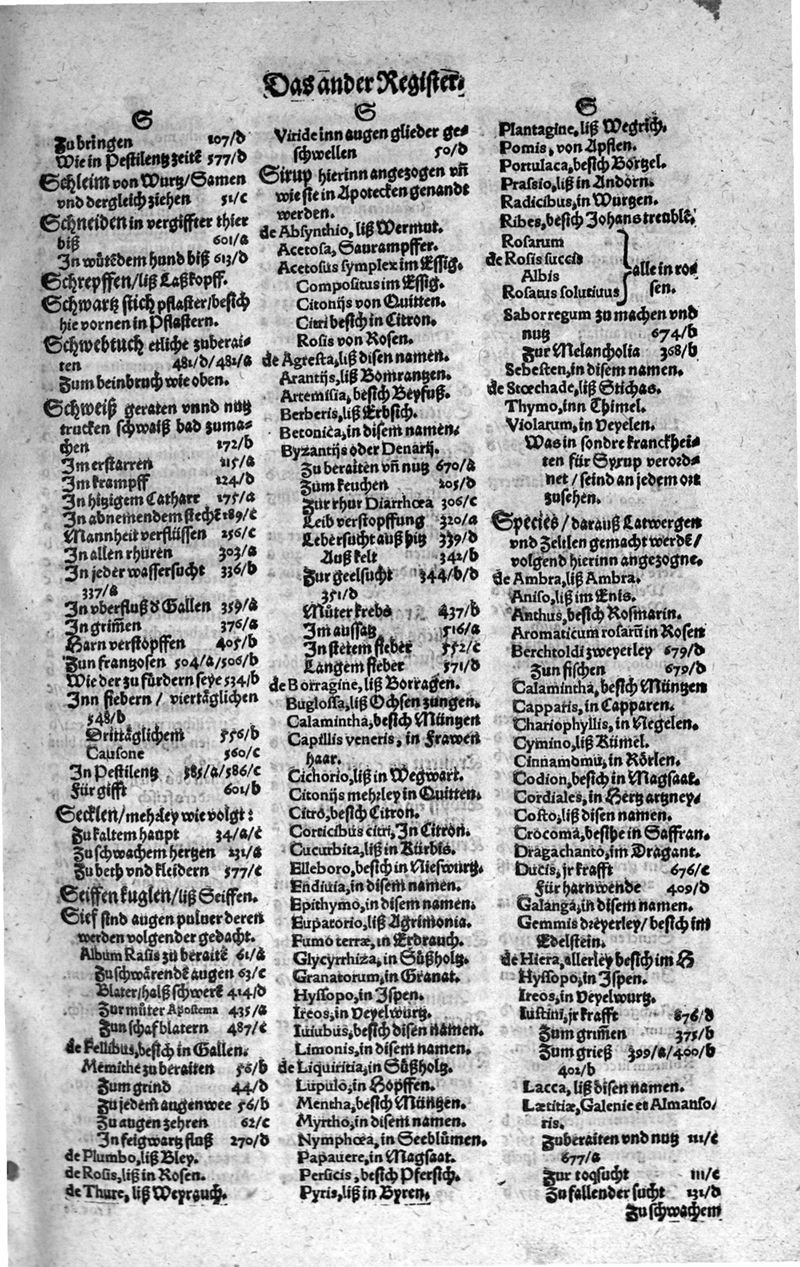 Das ander Register.
S
Zu bringen 107/d
Wie in Pestilentz zeitẽ 577/d
Schleim von Wurtz/Samen
vnd dergleich ziehen 51/c
Schneiden in vergiffter thier
biß 601/a
In wütẽdem hund biß 613/d
Schrepffen/liß Laßkopff.
Schwartz stich pflaster/besich
hie vornen in Pflastern.
Schwebtuch etliche zuberai-
ten 481/d/482/a
Zum beinbruch wie oben.
Schweiß geraten vnnd nutz
trucken schwaiß bad zuma-
chen 172/b
Im erstarren 115/a
Im krampff 124/d
In hitzigem Catharr 175/a
In abnemendem stechẽ 189/c
Mannheit verflüssen 256/c
In allen rhüren 303/a
In jeder wassersucht 336/b
337/a
In vberfluß d' Gallen 359/a
In grim̃en 376/a
Harn verstopffen 405/b
Zun frantzosen 504/a/506/b
Wie der zu fürdern seye 534/b
Inn fiebern/ viertäglichen
548/b
Drittäglichem 556/b
Causone 560/c
In Pestilentz 585/a/586/c
Für gifft 601/b
Secklen/mehrley wie volgt:
Zu kaltem haupt 34/a/c
Zu schwachem hertzen 231/a
Zu beth vnd kleidern 577/c
Seiffen kuglen/liß Seiffen.
Sief sind augen puluer deren
werden volgender gedacht.
Album Rasis zu beraitẽ 61/a
Zu schwärendẽ augen 63/c
Blater/halß schwerẽ 414/d
Zur müter Apostema 435/a
Zun schafblatern 487/c
de Fellibus, besich in Gallen.
Memithe zu beraiten 56/b
Zum grind 44/d
Zu jedem augenwee 56/b
Zu augen zehren 62/c
In feigwartz fluß 270/d
de Plumbo, liß Bley.
de Rosis, liß in Rosen.
de Thure, liß Weyrauch.
S
Viride inn augen glieder ge-
schwellen 50/d
Sirup hierinn angezogen vñ
wie sie in Apotecken genandt
werden.
de Absynthio, liß Wermut.
Acetosa, Saurampffer.
Acetosus symplex im Essig.
Compositus im Essig.
Citonijs von Quitten.
Citri besich in Citron.
Rosis von Rosen.
de Agresta, liß disen namen.
Arantijs, liß Bomrantzen.
Artemisia, besich Beyfuß.
Berberis, liß Erbsich.
Betonica, in disem namen.
Byzantijs oder Denarij.
Zu beraiten vñ nutz 670/a
Zum keuchen 205/d
Zur rhur Diarrhœa 306/c
Leib verstopffung 320/a
Lebersucht auß hitz 339/d
Auß kelt 342/b
Zur geelsucht 344/b/d
351/d
Müter krebs 437/b
Im aussatz 516/a
In stetem fieber 552/c
Langem fieber 571/d
de Borragine, liß Borragen.
Buglossa, liß Ochsen zungen.
Calamintha, besich Müntzen
Capillis veneris, in Frawen
haar.
Cichorio, liß in Wegwart.
Citonijs mehrley in Quitten.
Citro, besich Citron.
Corticibus citri, In Citron.
Cucurbita, liß in Kürbis.
Elleboro, besich in Nieswurtz.
Endiuia, in disem namen.
Epithymo, in disem namen.
Eupatorio, liß Agrimonia.
Fumo terræ, in Erdrauch.
Glycyrrhiza, in Süßholtz.
Granatorum, in Granat.
Hyssopo, in Ispen.
Ireos, in Veyelwurtz.
Iuiubus, besich disen namen.
Limonis, in disem namen.
de Liquiritia, in Süßholtz.
Lupulo, in Hopffen.
Mentha, besich Müntzen.
Myrtho, in disem namen.
Nymphœa, in Seeblůmen.
Papauere, in Magsaat.
Persicis, besich Pfersich.
Pyris, liß in Byren.
S
Plantagine, liß Wegrich.
Pomis, von Apffen.
Portulaca, besich Börtzel.
Prassio, liß in Andorn.
Radicibus, in Wurtzen.
Ribes, besich Johanstreublẽ.
Rosarum
de Rosis succis
Albis
Rosatus solutiuus
alle in ro-
sen.
Sabor regum zu machen vnd
nutz 674/b
Zur Melancholia 368/b
Sebesten, in disem namen.
de Stœchade, liß Stichas.
Thymo, inn Thimel.
Violarum, in Veyelen.
Was in sondre kranckhei-
ten für Syrup verord-
net/seind an jedem ort
zusehen.
Species/darauß Latwergen
vnd Zeltlen gemacht werdẽ/
volgend hierinn angezogne.
de Ambra, liß Ambra.
Aniso, liß im Enis.
Anthus, besich Rosmarin.
Aromaticum rosarũ in Rosen
Berchtoldi zweyerley 679/d
Zun fischen 679/d
Calamintha, besich Müntzen
Capparis, in Capparen.
Chariophyllis, in Negelen.
Cymino, liß Kümel.
Cinnamomũ, in Rörlen.
Codion, besich in Magsaat.
Cordiales, in Hertz artzney.
Costo, liß disen namen.
Crocoma, besihe in Saffran.
Dragachanto, im Dragant.
Ducis, jr krafft 676/c
Für harnwende 409/d
Galanga, in disem namen.
Gemmis dreyerley/ besich im
Edelstein.
de Hiera, allerley besich im H
Hyssopo, in Ispen.
Ireos, in Veyelwurtz.
Iustini, jr krafft 676/d
Zum grim̃en 375/b
Zum grieß 399/a/400/b
402/b
Lacca, liß disen namen.
Lætitiæ, Galenie et Almanso/
ris.
Zuberaiten vnd nutz 111/c
677/a
Zur tobsucht 111/c
Zu fallender sucht 131/d
Zu schwachem